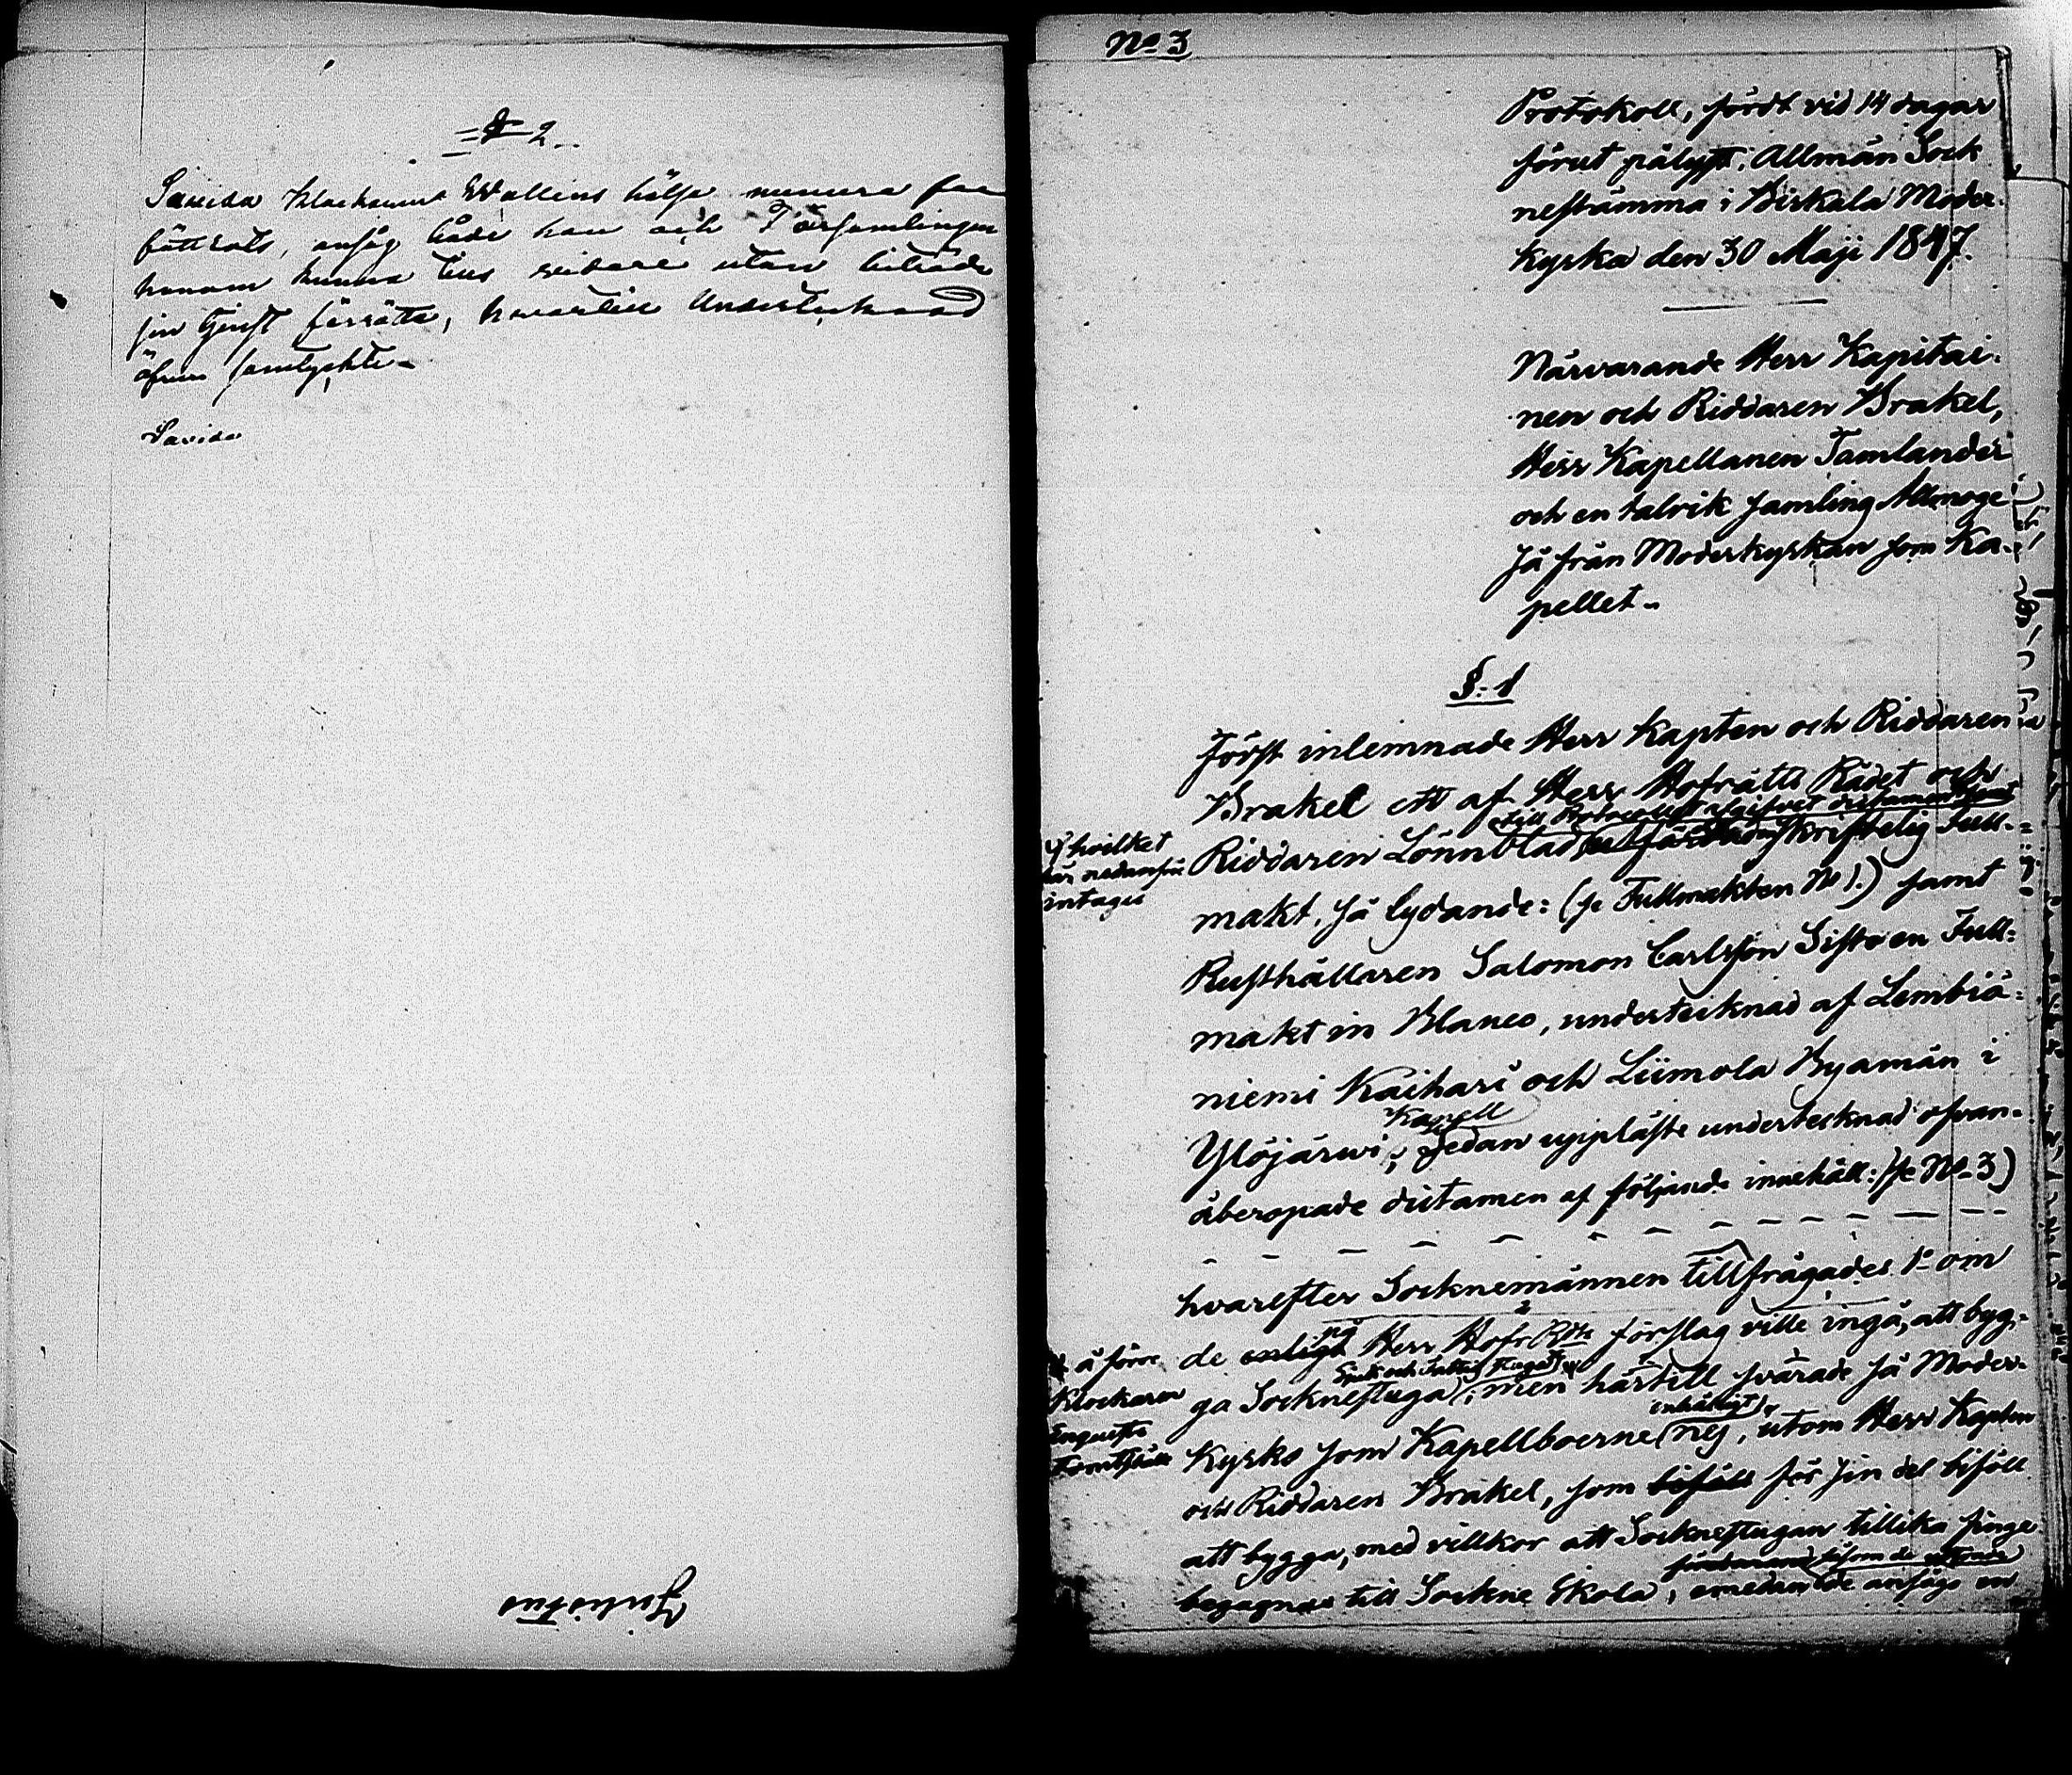 § 2
Sauida Klockaren Wallens hälsa numera för
bättrats, ansåg både han och Församlingen
honom kunna tills vidare utan biträde
sin tjenst förrätta, hvartill Undertecknad
äfven samtyckte.
Sauida
No 3
Protokoll, fördt vid 14 dagar
förut pålyst, Allmän Sock
nestämma i Birkala Moder-
kyrka den 30 Maji 1847.
Närvarande Herr Kapitai-
nen och Riddaren Brakel,
Herr Kapellanen Tamlander
och en talrik samling Allmoge
så från Moderkyrkan som Ka-
pellet.
§. 1
Först inlemnade Herr Kapten och Riddaren
Brakel ett af Herr Hofrätts Rådet och
till Protocollet afgifvet dictamen samt
Riddaren Lönnblad skriftelig Full-
hvilket
här nedanför
intages
makt, så lydande: (se Fullmakten No 1.) samt
Rusthållaren Salomon Carlsson Sisto en Full-
makt in Blanco, undertecknad af Lembiä-
niemi Kaihari och Liimola Byamän i
Kapell
Ylöjärwi; sedan uppläste undertecknad ofvan-
åberopade dictamen af följande innehåll: (se No 3)
hvarefter Socknemännen tillfrågades 1o om
de enligt på Herr HofrRåts förslag ville ingå, att byg-
å förre
Klockaren
ga Socknestuga; men härtill svarade så Moder-
enhälligt
Kyrko som Kapellboerne nej, utom Herr Kapten
och Riddaren Brakel, som biföll för sin del biföll
att bygga, med villkor att Socknestugan tillika finge
begagnas till Sockne Skola, emedan de ansågs en